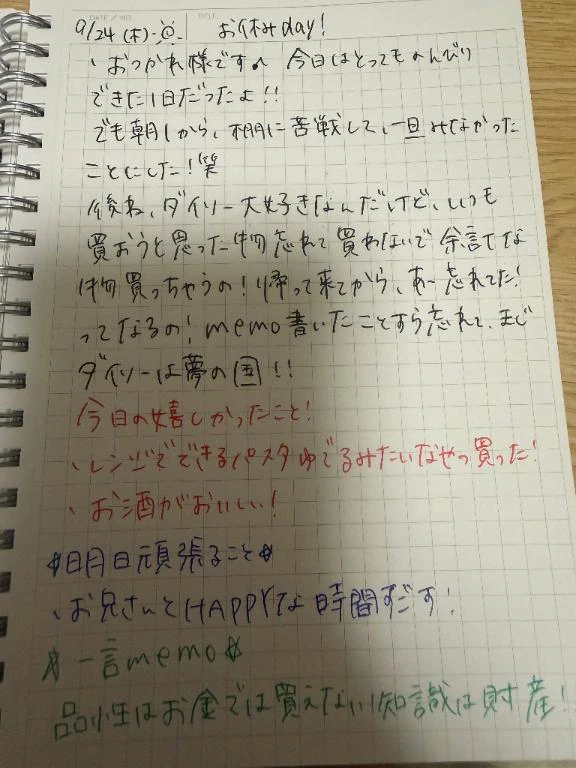 DATE / NO.
TITLE
9/24 (木) お休みday!
、おつかれ様です 今日はとってものんびり
できた1日だったよ!!
でも朝しから、棚に苦戦して、一旦みなかった
ことにした!笑
後ね、ダイソー大好きなんだけど、いつも
買おうと思った物忘れて買わないで余計な
物買っちゃうの!帰って来てから、あ〜忘れてた!
ってなるの!memo書いたことすら忘れて、まじ
ダイソーは夢の国!!
今日の嬉しかったこと!
、レンジでできるパスタゆでるみたいなやつ買った!
、お酒がおいしい!
☆明日頑張ること☆
、お兄さんとHAPPYな時間すごす!
☆一言memo☆
品性はお金では買えない!知識は財産!!